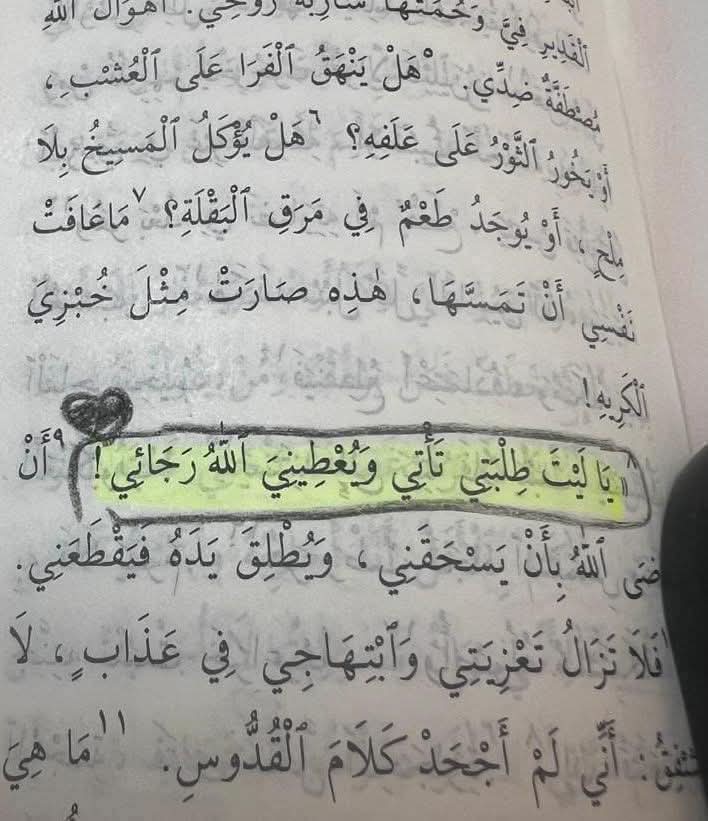 ٱلْقَدِيرِ فِيَّ وَحُمَتَهَا شَارِبَةٌ رُوحِي. أَهْوَالُ ٱللهِ
مُصْطَفَّةٌ ضِدِّي. ٥هَلْ يَنْهَقُ ٱلْفَرَا عَلَى ٱلْعُشْبِ،
أَوْ يَخُورُ ٱلثَّوْرُ عَلَى عَلَفِهِ؟ ٦هَلْ يُؤْكَلُ ٱلْمَسِيخُ بِلَا
مِلْحٍ، أَوْ يُوجَدُ طَعْمٌ فِي مَرَقِ ٱلْبَقْلَةِ؟ ٧مَا عَافَتْ
نَفْسِي أَنْ تَمَسَّهَا، هٰذِهِ صَارَتْ مِثْلَ خُبْزِيَ
ٱلْكَرِيهِ!
٨«يَا لَيْتَ طِلْبَتِي تَأْتِي وَيُعْطِينِيَ ٱللهُ رَجَائِي! ٩أَنْ
ضَى ٱللهُ بِأَنْ يَسْحَقَنِي، وَيُطْلِقَ يَدَهُ فَيَقْطَعَنِي.
فَلَا تَزَالُ تَعْزِيَتِي وَٱبْتِهَاجِي فِي عَذَابٍ، لَا
يُشْفِقُ: أَنِّي لَمْ أَجْحَدْ كَلَامَ ٱلْقُدُّوسِ. ١١مَا هِيَ